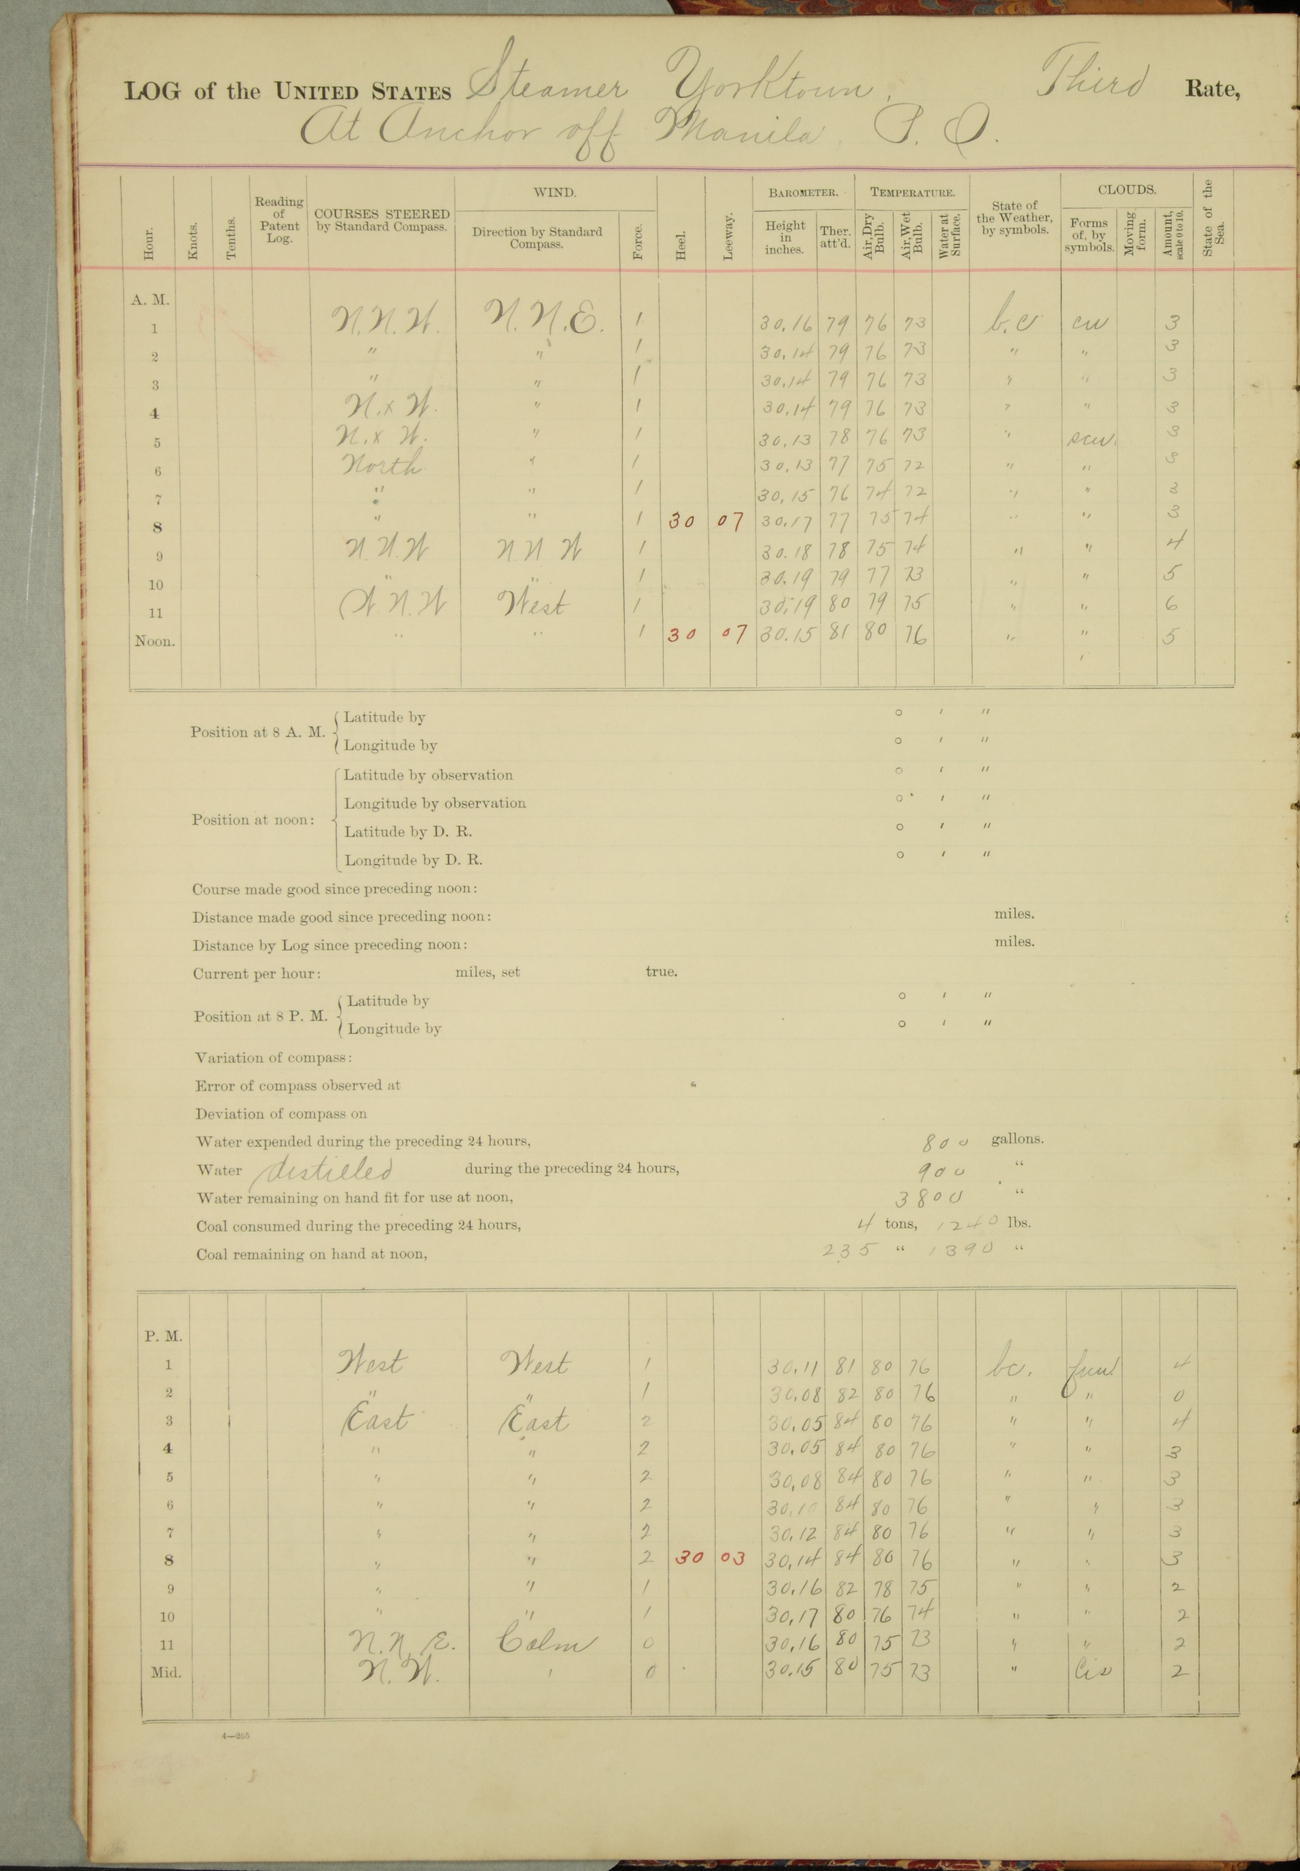 LOG of the UNITED STATES Steamer Yorktown, Third Rate,
At Anchor off Manila, P. I.
Hour. Knots. Tenths. Reading of Patent Log. COURSES STEERED by Standard Compass. WIND. Direction by Standard Compass. Force. Heel. Leeway. BAROMETER. Height in inches. Ther. att'd. TEMPERATURE. Air, Dry Bulb. Air, Wet Bulb. Water at Surface. State of the Weather, by symbols. CLOUDS. Forms of, by symbols. Moving form. Amount, scale 0 to 10. State of the Sea.
A. M.
1 N.N.W. N.N.E. 1 30.16 79 76 73 b.c cu 3
2 " " 1 30.14 79 76 73 " " 3
3 " " 1 30.14 79 76 73 " " 3
4 N. x W. " 1 30.14 79 76 73 " " 3
5 N. x W. " 1 30.13 78 76 73 " scu. 3
6 North " 1 30.13 77 75 72 " " 3
7 " " 1 30.15 76 74 72 " " 3
8 " " 1 30 07 30.17 77 75 74 " " 3
9 N.N.W N N W 1 30.18 78 75 74 " " 4
10 " " 1 30.19 79 77 73 " " 5
11 W.N.W West 1 30.19 80 79 75 " " 6
Noon. " " 1 30 07 30.15 81 80 76 " " 5
Position at 8 A. M. Latitude by ° ′ ″
Longitude by ° ′ ″
Position at noon: Latitude by observation ° ′ ″
Longitude by observation ° ′ ″
Latitude by D. R. ° ′ ″
Longitude by D. R. ° ′ ″
Course made good since preceding noon:
Distance made good since preceding noon: miles.
Distance by Log since preceding noon: miles.
Current per hour: miles, set true.
Position at 8 P. M. Latitude by ° ′ ″
Longitude by ° ′ ″
Variation of compass:
Error of compass observed at
Deviation of compass on
Water expended during the preceding 24 hours, 800 gallons.
Water distilled during the preceding 24 hours, 900 "
Water remaining on hand fit for use at noon, 3800 "
Coal consumed during the preceding 24 hours, 4 tons, 1240 lbs.
Coal remaining on hand at noon, 235 " 1390 "
P. M.
1 West West 1 30.11 81 80 76 bc. 4
2 " " 1 30.08 82 80 76 " " 0
3 East East 2 30.05 84 80 76 " " 4
4 " " 2 30.05 84 80 76 " " 3
5 " " 2 30.08 84 80 76 " " 3
6 " " 2 30.10 84 80 76 " " 3
7 " " 2 30.12 84 80 76 " " 3
8 " " 2 30 03 30.14 84 80 76 " " 3
9 " " 1 30.16 82 78 75 " " 2
10 " " 1 30.17 80 76 74 " " 2
11 N.N.E. Calm 0 30.16 80 75 73 " " 2
Mid. N.W. " 0 30.15 80 75 73 " 2
4—265